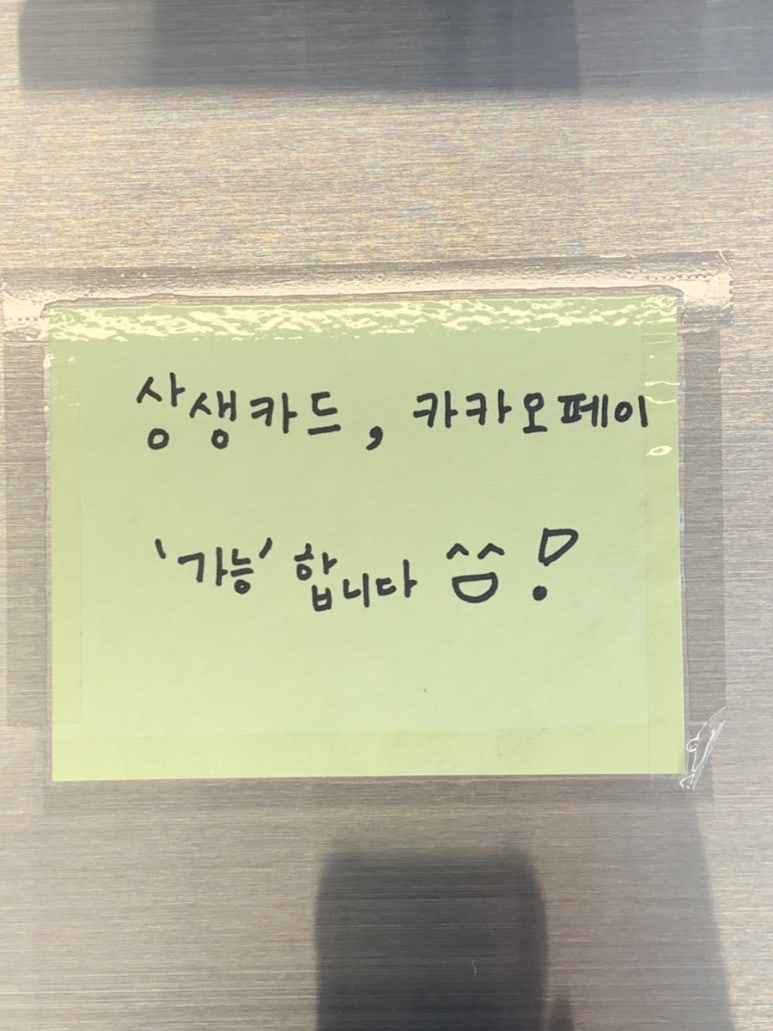 상생카드, 카카오페이
'가능' 합니다 ^^!